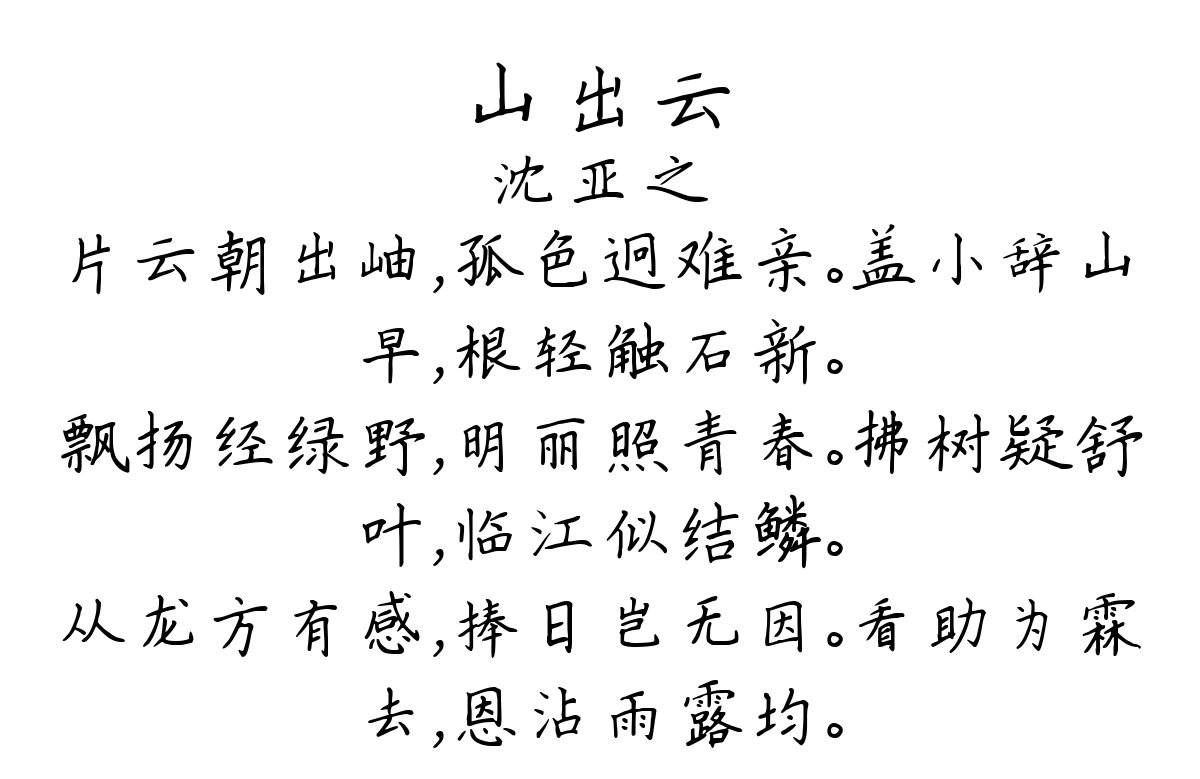 山出云
沈亚之
片云朝出岫,孤色迥难亲。盖小辞山
早,根轻触石新。
飘扬经绿野,明丽照青春。拂树疑舒
叶,临江似结鳞。
从龙方有感,捧日岂无因。看助为霖
去,恩沾雨露均。